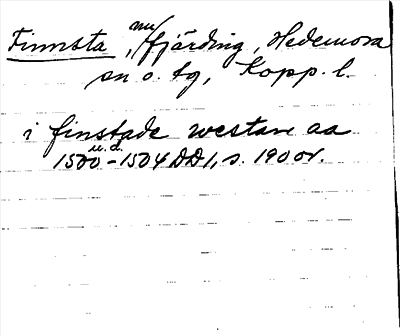 Finnsta, nu fjärding, Hedemora
sn o. tg, Kopp. l.
i finstade westan aa
1500 u.d. - 1504 DD 1, s. 190 or.